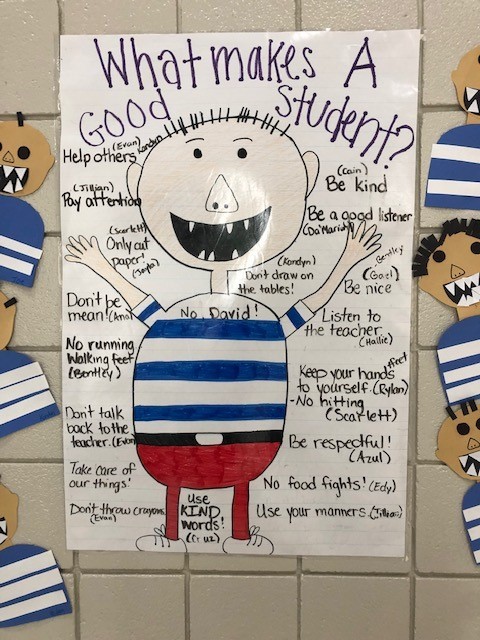 What makes A
Good Student?
Help others
(Evan) Kandyn
(Jillian)
Pay attention
(Scarlett)
Only cut
paper!
(Jayla)
(Cain)
Be kind
Be a good listener
(Da'Mariah)
(Kandyn)
Don't draw on
the tables!
Bentley
(Gael)
Be nice
Don't be
mean! (Ama)
No, David!
Listen to
the teacher
(Hallie)
No running
Walking feet
(Bentley)
Keep your hands
+feet
to yourself. (Rylan)
-No hitting
(Scarlett)
Don't talk
back to the
teacher. (Evan)
Be respectful!
(Azul)
Take care of
our things!
No food fights! (Edy)
Don't throw crayons
(Evan)
Use
KIND
words!
(Cruz)
Use your manners (Jillian)